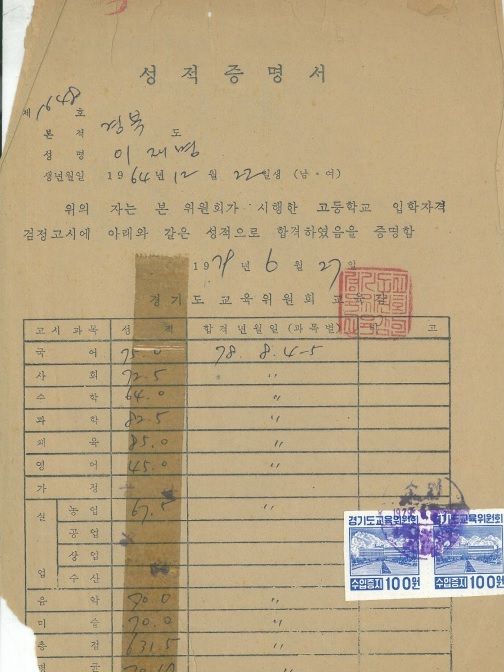 성적증명서
제 호
본적 경북 도
성명 이재명
생년월일 1964년 12월 22일생 (남·여)
위의 자는 본 위원회가 시행한 고등학교 입학자격
검정고시에 아래와 같은 성적으로 합격하였음을 증명함
1979년 6월 27일
경기도 교육위원회 교육감
고시과목 성적 합격년월일(과목별) 비고
국어 75.0 78. 8. 4-5
사회 72.5 〃
수학 64.0 〃
과학 82.5 〃
체육 85.0 〃
영어 45.0 〃
가정
실업 농업 67.5 〃
공업
상업
수산
음악 70.0 〃
미술 70.0 〃
총점 631.5
평균
경기도교육위원회 경기도교육위원회
수입증지 100원 수입증지 100원